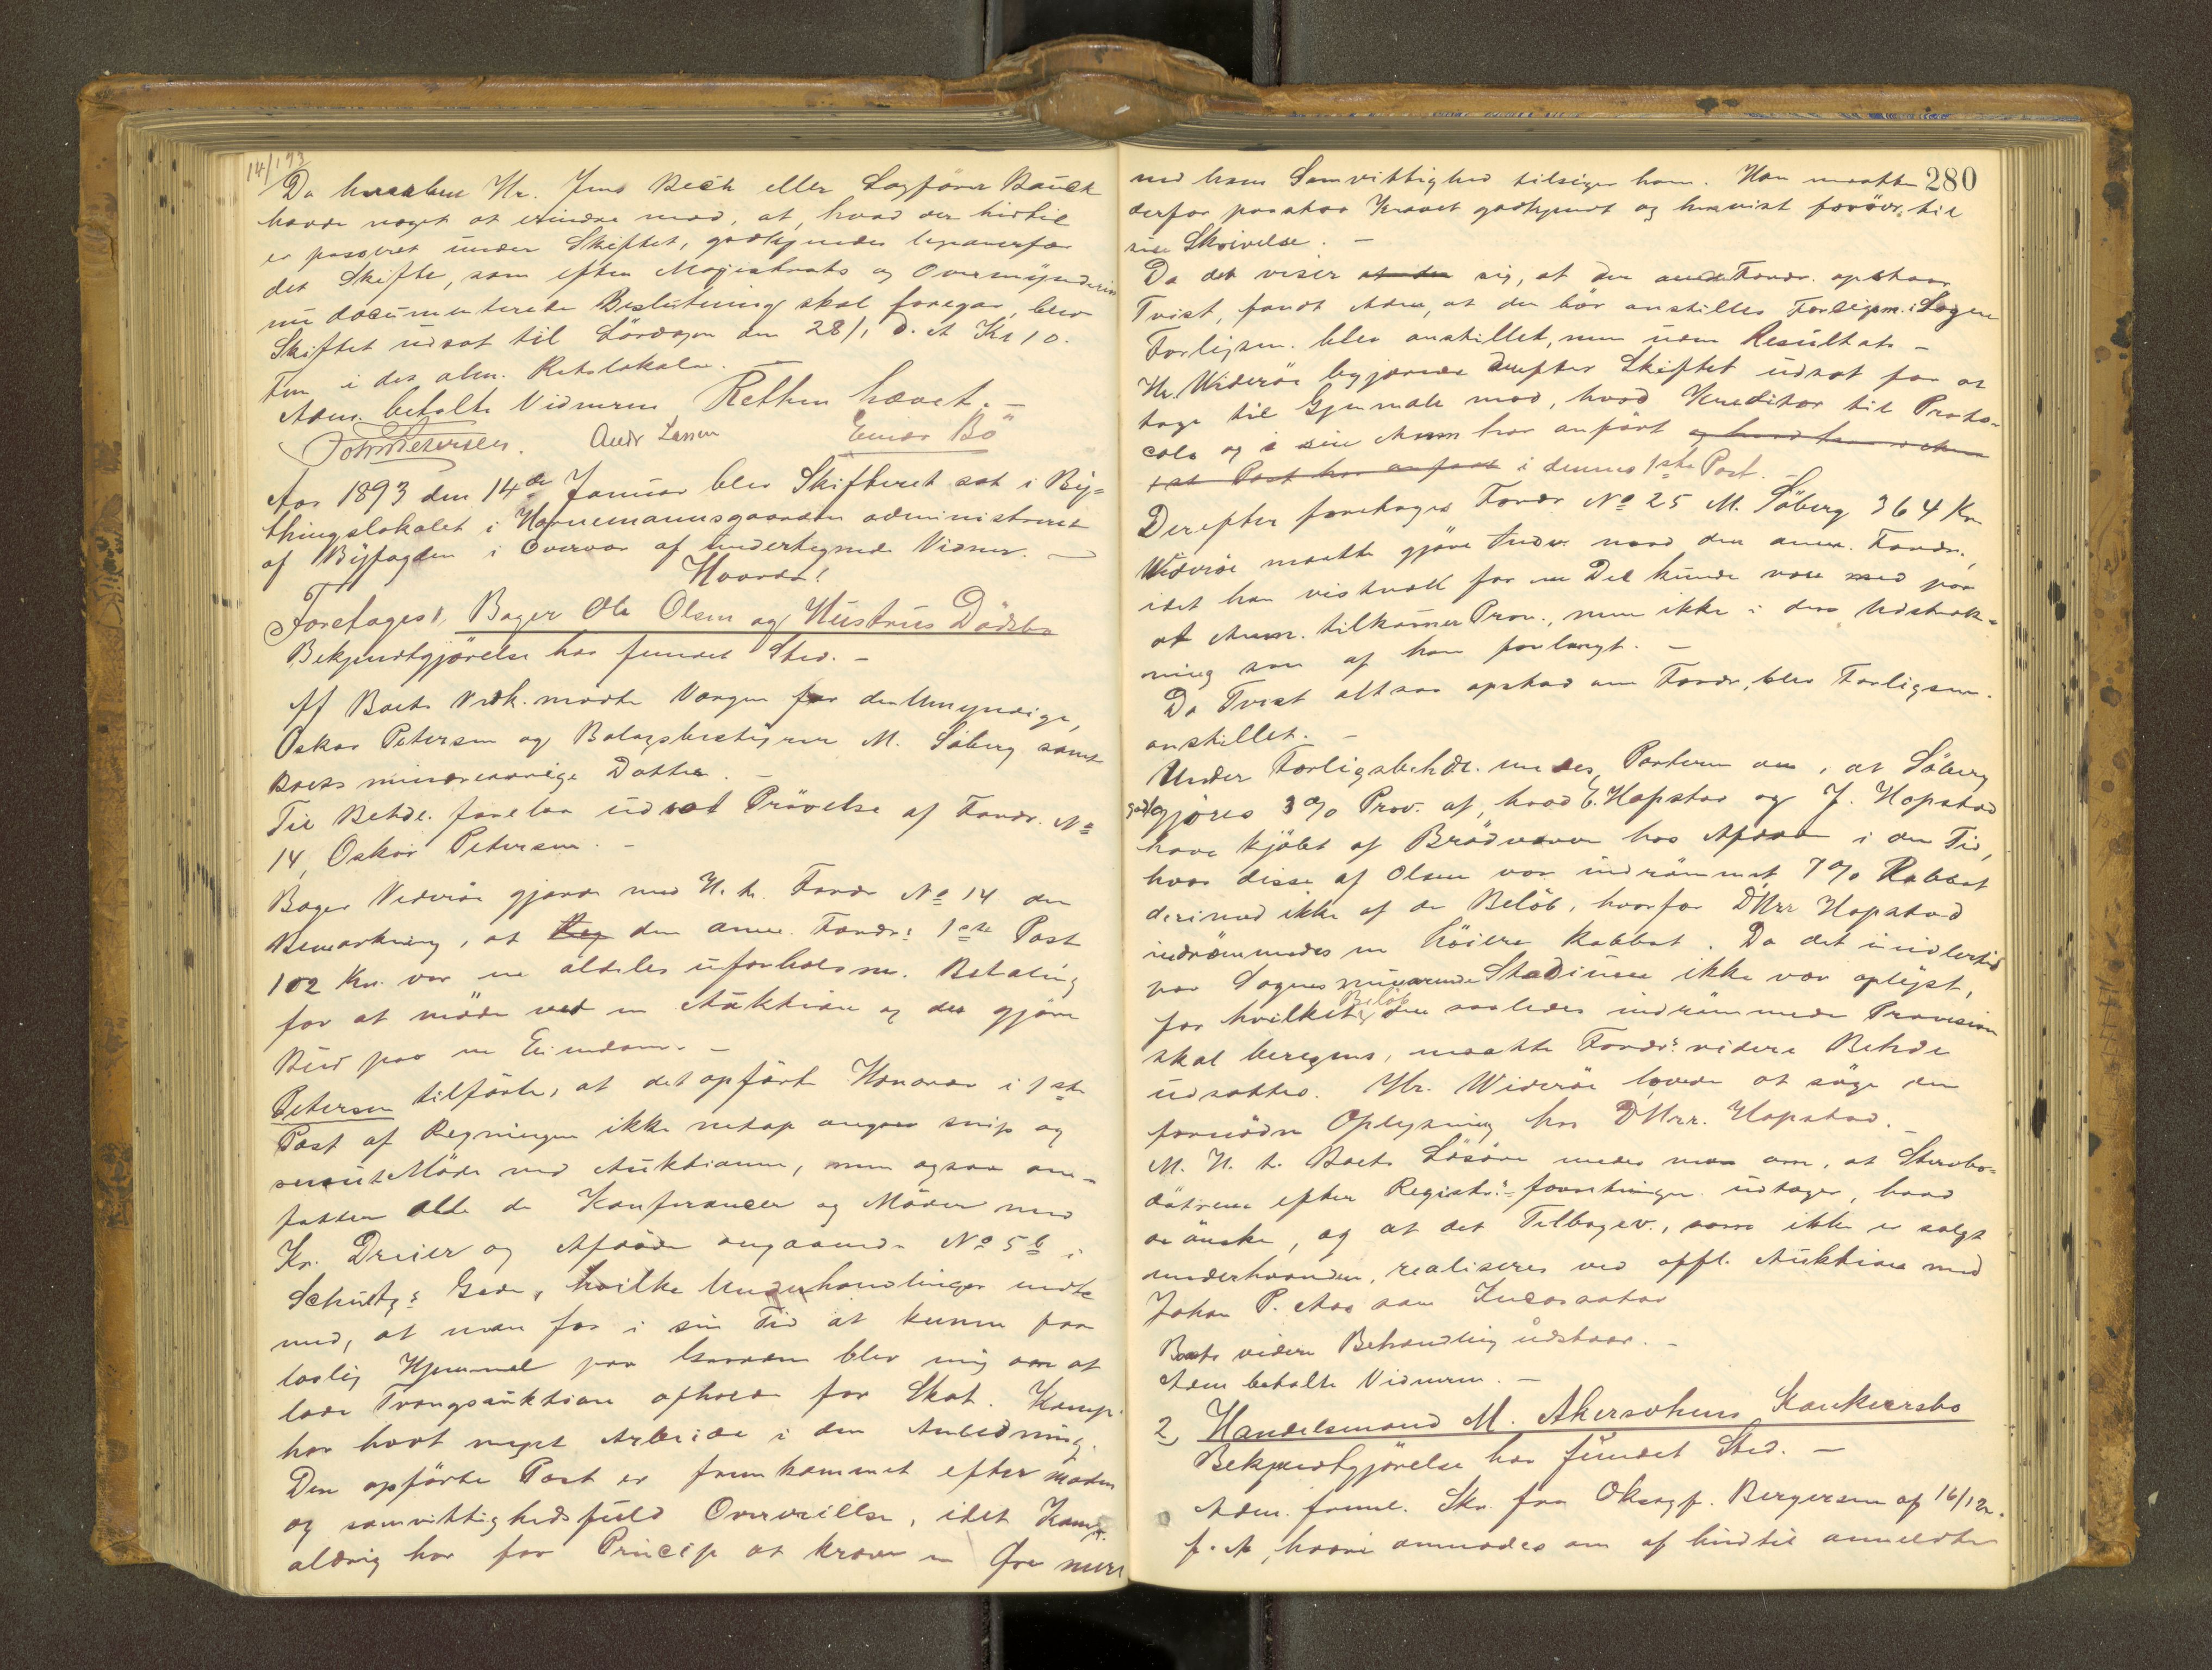 14/1 93
Da hverken Hr. Jens Beck eller Sagfører Bauck
havde noget at erindre mod, at, hvad der hidtil
er passeret under Skiftet, godkjendes
det Skifte, som efter Magistrats og Overmynderin
nu documenterede Beslutning skal foregaa, blev
Skiftet udsat til Lördagen den 28/1 d. A Kl 10.
Fm i det alm. Retslokale. —
Adm. betalte Vidnerne Retten hævet. —
Joh Petersen. Andr Larsen Einar Bö
Aar 1893 den 14de Januar blev Skifteret sat i By-
thingslokalet i Hornemannsgaarden administreret
af Byfogden i Overvær af undertegnede Vidner. —
Hvorda!
Foretoges 1, Bager Ole Olsen og Hustrus Dödsbo
Bekjendtgjörelse har fundet Sted. —
Af Boets Vedk. mödte Værgen for den Umyndige,
Oskar Petersen og Bolagsbestyrer M. Söberg samt
Boets mindreaarige Datter. —
Til Behdl. forelaa udsat Prövelse af Fordr. No
14, Oskar Petersen. —
Bager Videröe gjorde med H. t. Fordr No 14 den
Bemærkning, at Reg den anm. Fordr: 1ste Post
102 Kr. var en aldeles uforholdsm. Betaling
for at möde ved en Auktion og der gjöre
Bud paa en Eiendom. —
Petersen tilförte, at det opförte Honorar i 1ste
Post af Regningen ikke netop angaar snip og
snaut Möde ved Auktionen, men ogsaa om-
fatter alle de Konferancer og Möder med
Kr. Dreier og Afdöde angaaende No 5b i
Schultz's Gade, hvilke Underhandlinger endte
med, at man for i sin Tid at kunne faa
lovlig Hjemmel paa Gaarden blev enig om at
lade Tvangsauktion afholde for Skat. Komp.
har havt meget Arbeide i den Anledning.
Den opförte Post er fremkommet efter moden
og samvittighedsfuld Overveielse, idet Komp.
aldrig har for Princip at kræve en Øre mere
280
end hans Samvittighed tilsiger ham. Han maatte
derfor paastaa Kravet godkjendt og henvist forövr. til
sin Skrivelse. —
Da det viser at der sig, at der om Fordr. opstaar
Tvist, fandt Adm, at der bör anstilles Forligsm. i Sagen
Forligsm. blev anstillet, men uden Resultat —
Hr. Wideröe begjærede derefter Skiftet udsat for at
tage til Gjenmæle mod, hvad Kreditor til Proto-
col og i sin Anm har anfört og hvad han i den
1st Post har anfört i dennes 1ste Post. —
Derefter foretoges Fordr No 25 M. Söberg 364 Kr
Wideröe maatte gjöre Indv. mod den anm. Fordr.,
idet han vistnok for en Del kunde være med paa
at Anm. tilkommer Prov., men ikke i den Udstræk-
ning som af ham forlangt. —
Da Tvist altsaa opstod om Fordr, blev Forligsm.
anstillet. —
Under Forligsbehdl. enedes Parterne om, at Söberg
godtgjöres 3 % Prov. af, hvad E. Hopstad og J. Hopstad
have kjöbt af Brödvarer hos Afdöde i den Tid,
hvor disse af Olsen var indrömmet 7 % Rabbat
derimod ikke af de Belöb, hvorfor DHrr Hopstad
indrömmedes en höiere Rabbat. Da det imidlertid
paa Sagens nuværende Stadium ikke var oplyst,
for hvilket Belöb den saaledes indrömmede Provision
skal beregnes, maatte Fordr: videre Behdl
udsættes. Hr. Wideröe lovede at söge den
fornödne Oplysning hos DHrr. Hopstad. —
M. H. t. Boets Lösöre enedes man om, at Stervbo-
döttrene efter Registr:-forretningen udtager, hvad
de önske, og at det Tilbagev., som ikke er solgt
underhaanden, realiseres ved offl. Auktion med
Johan P. Aas som Incassator
Boets videre Behandling udstaar. —
Adm betalte Vidnerne. —
2, Handelsmand M. Akersohens Konkursbo
Bekjendtgjörelse har fundet Sted. —
Adm. freml. Skr. fra Oksagf. Bergersen af 16/12
f. A, hvori anmodes om af hindtil anmeldte